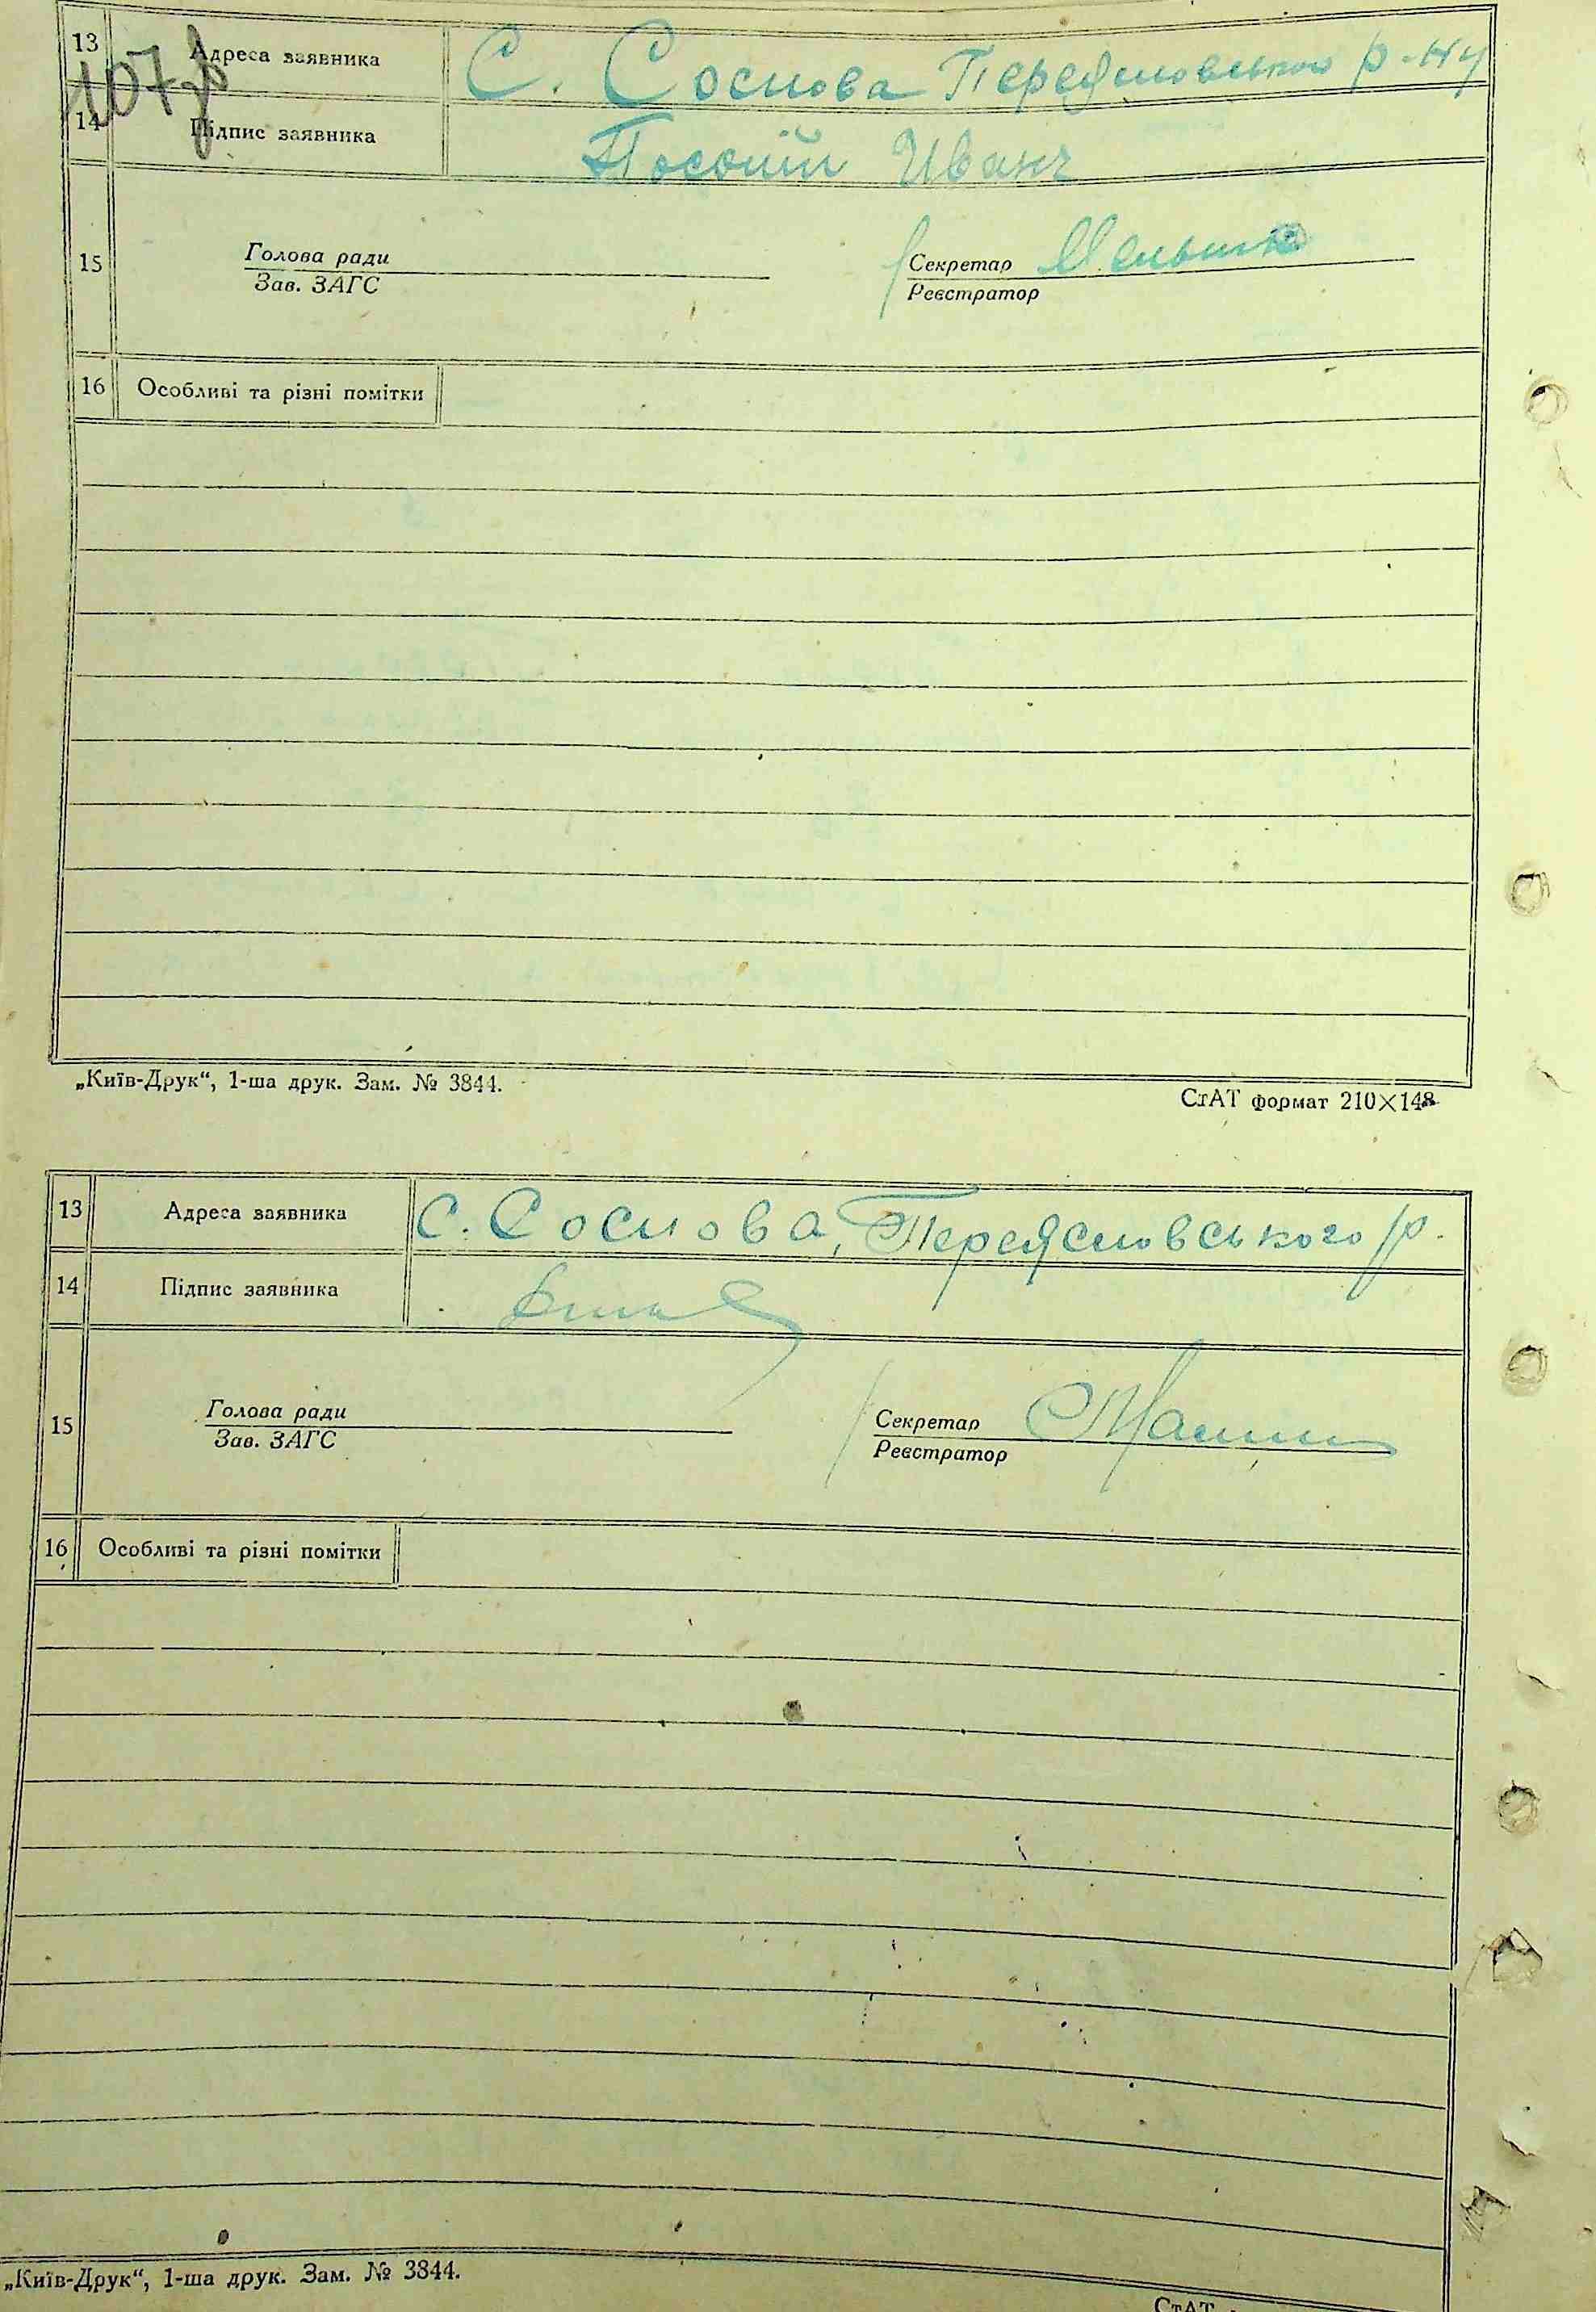 107
13 Адреса заявника С. Соснова Переяславського р-ну
14 Підпис заявника Иван
15 Голова ради Секретар
Зав. ЗАГС Реєстратор
16 Особливі та різні помітки
„Київ-Друк“, 1-ша друк. Зам. № 3844.
СтАТ формат 210×148
13 Адреса заявника С. Соснова, Переясловського р.
14 Підпис заявника
15 Голова ради Секретар
Зав. ЗАГС Реєстратор
16 Особливі та різні помітки
„Київ-Друк“, 1-ша друк. Зам. № 3844.
СтАТ